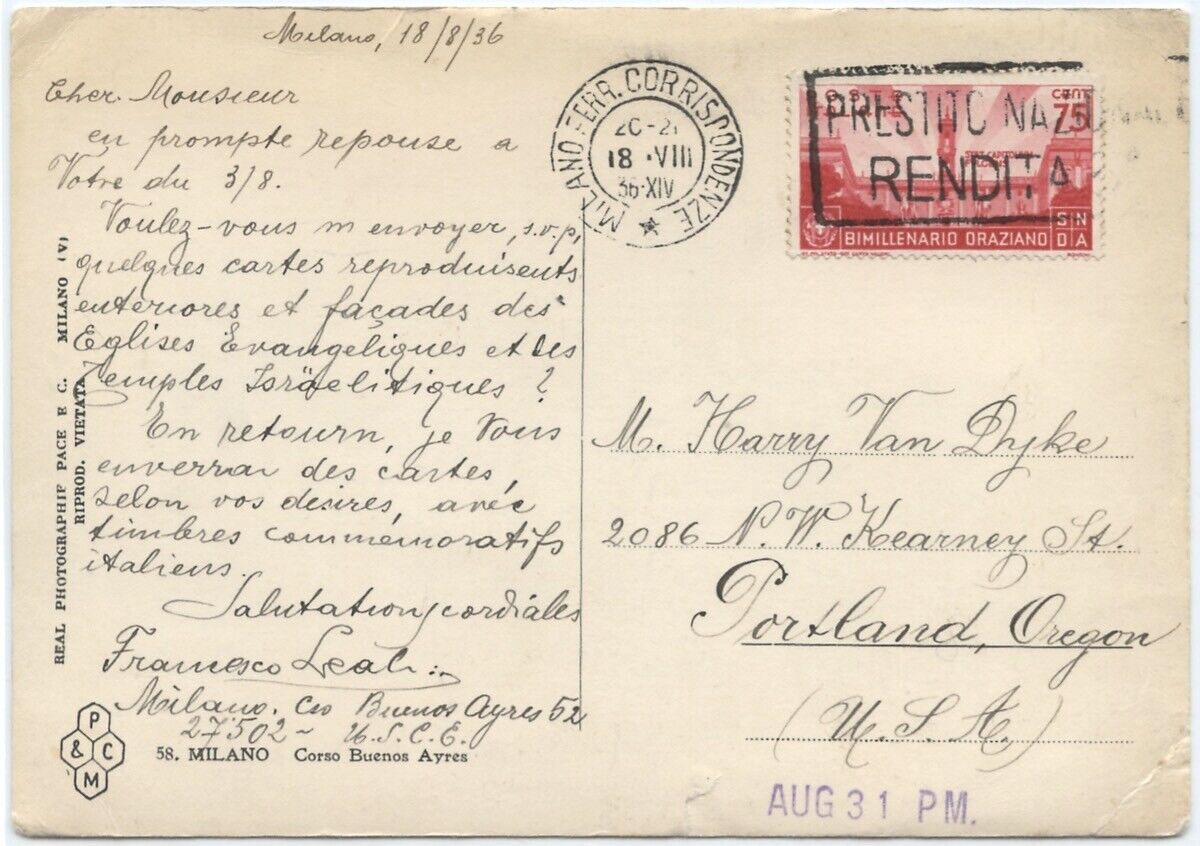 Milano, 18/8/36
Cher. Monsieur
en prompte repouse a
Votre du 3/8.
Voulez-vous m envoyer, s.v.p,
quelques cartes reproduisents
enteriores et façades des
Eglises Evangeliques et des
Temples Isräelitiques ?
En retourn, je Vous
enverrai des cartes,
selon vos desires, avec
timbres commemoratifs
italiens.
Salutations cordiales
Francesco
Milano. Cso Buenos Ayres 52
27502 - U.S.C.E.
58. MILANO Corso Buenos Ayres
REAL PHOTOGRAPHIE PACE E C. MILANO (V)
RIPROD. VIETATA
P
& C
M
MILANO FERR. CORRISPONDENZE
20-21
18 · VIII
36·XIV
POSTE
CENT.
75
PRESTITO NAZIONALE
RENDITA
BIMILLENARIO ORAZIANO
SN
DA
M. Harry Van Dyke
2086 N. W. Kearney St.
Portland, Oregon
(U. S. A.)
AUG 31 PM.